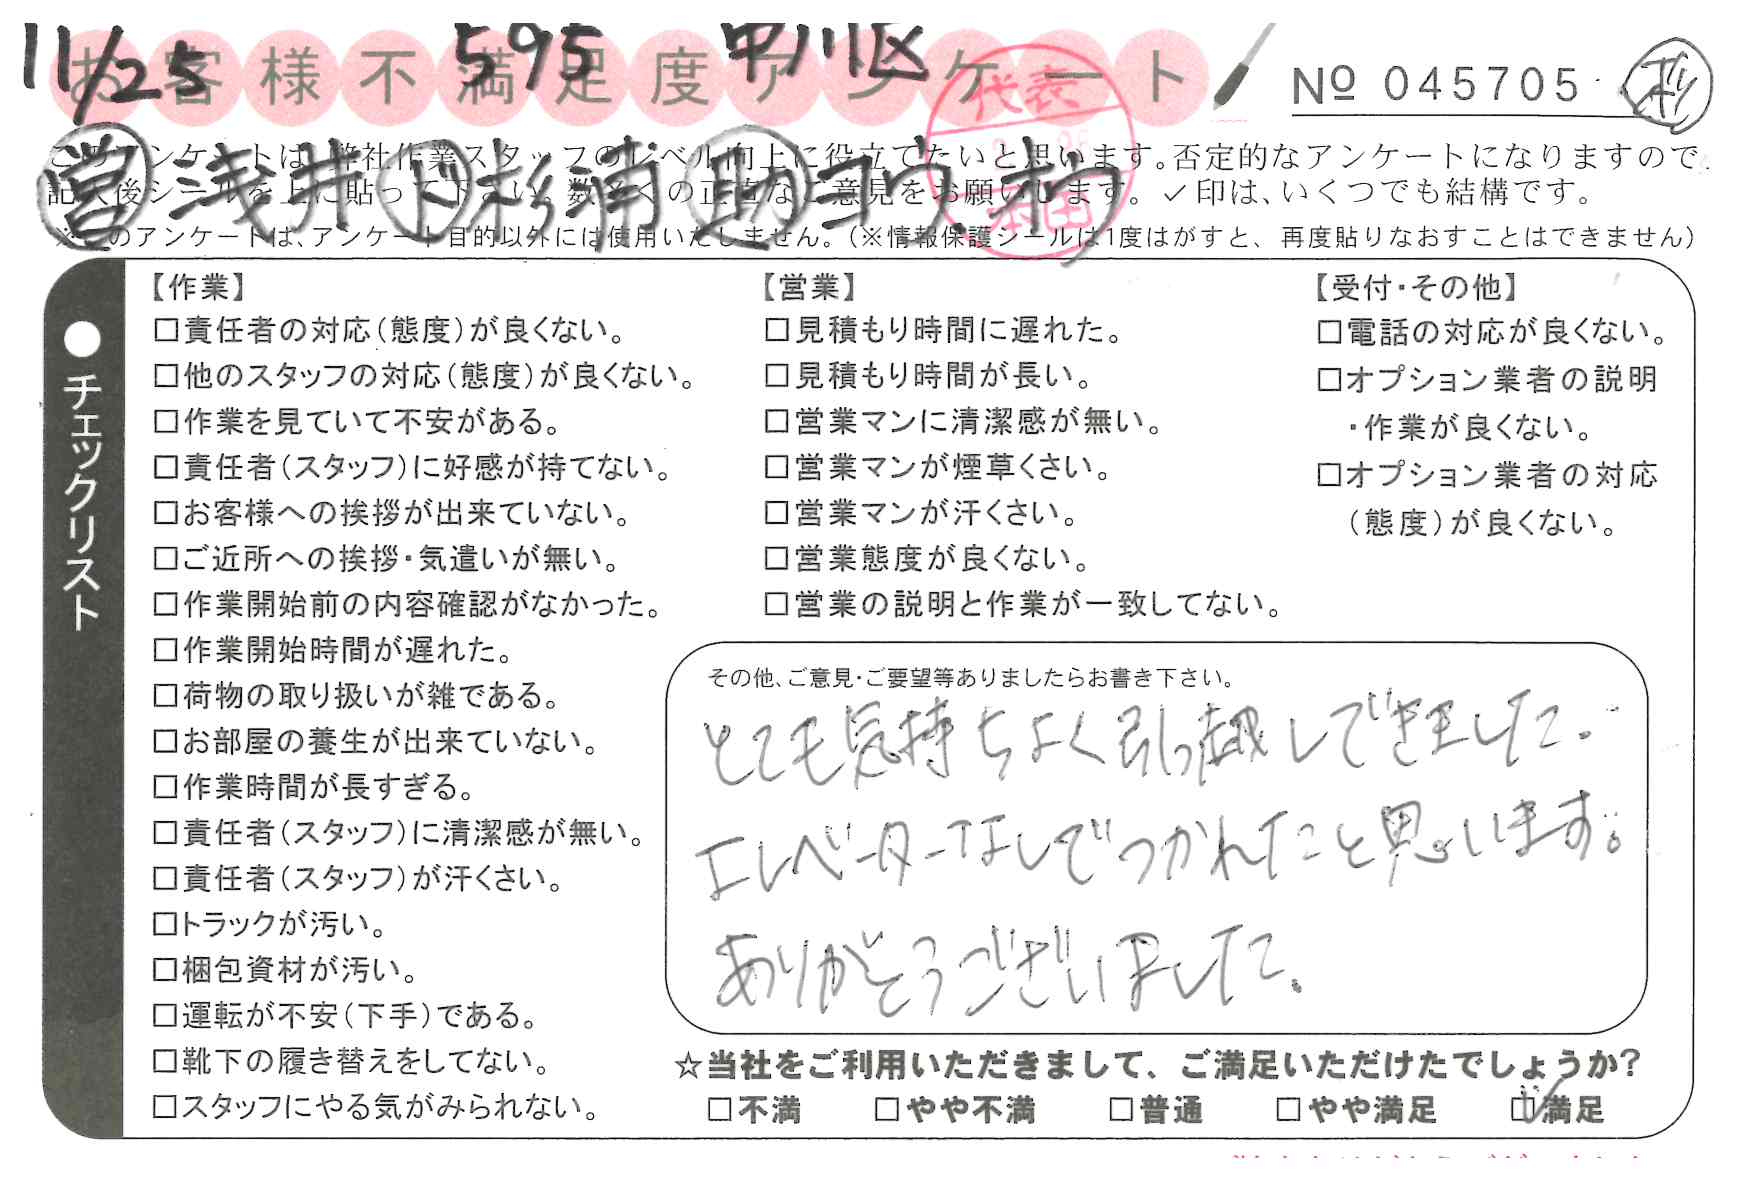 11/25 595 中川区
お客様不満足度アンケート
№ 045705
㊞ 浅井 下 杉浦 助 コウ ホウ
代表
本田
このアンケートは、弊社作業スタッフのレベル向上に役立てたいと思います。否定的なアンケートになりますので、
記入後シールを上に貼って下さい。数多くの正直なご意見をお願いします。✓印は、いくつでも結構です。
※このアンケートは、アンケート目的以外には使用いたしません。（※情報保護シールは1度はがすと、再度貼りなおすことはできません）
●チェックリスト
【作業】
□責任者の対応（態度）が良くない。
□他のスタッフの対応（態度）が良くない。
□作業を見ていて不安がある。
□責任者（スタッフ）に好感が持てない。
□お客様への挨拶が出来ていない。
□ご近所への挨拶・気遣いが無い。
□作業開始前の内容確認がなかった。
□作業開始時間が遅れた。
□荷物の取り扱いが雑である。
□お部屋の養生が出来ていない。
□作業時間が長すぎる。
□責任者（スタッフ）に清潔感が無い。
□責任者（スタッフ）が汗くさい。
□トラックが汚い。
□梱包資材が汚い。
□運転が不安（下手）である。
□靴下の履き替えをしてない。
□スタッフにやる気がみられない。
【営業】
□見積もり時間に遅れた。
□見積もり時間が長い。
□営業マンに清潔感が無い。
□営業マンが煙草くさい。
□営業マンが汗くさい。
□営業態度が良くない。
□営業の説明と作業が一致してない。
【受付・その他】
□電話の対応が良くない。
□オプション業者の説明
・作業が良くない。
□オプション業者の対応
（態度）が良くない。
その他、ご意見・ご要望等ありましたらお書き下さい。
とても気持ちよく引っ越しできました。
エレベーターなしでつかれたことと思います。
ありがとうございました。
☆当社をご利用いただきまして、ご満足いただけたでしょうか？
□不満 □やや不満 □普通 □やや満足 ☑満足